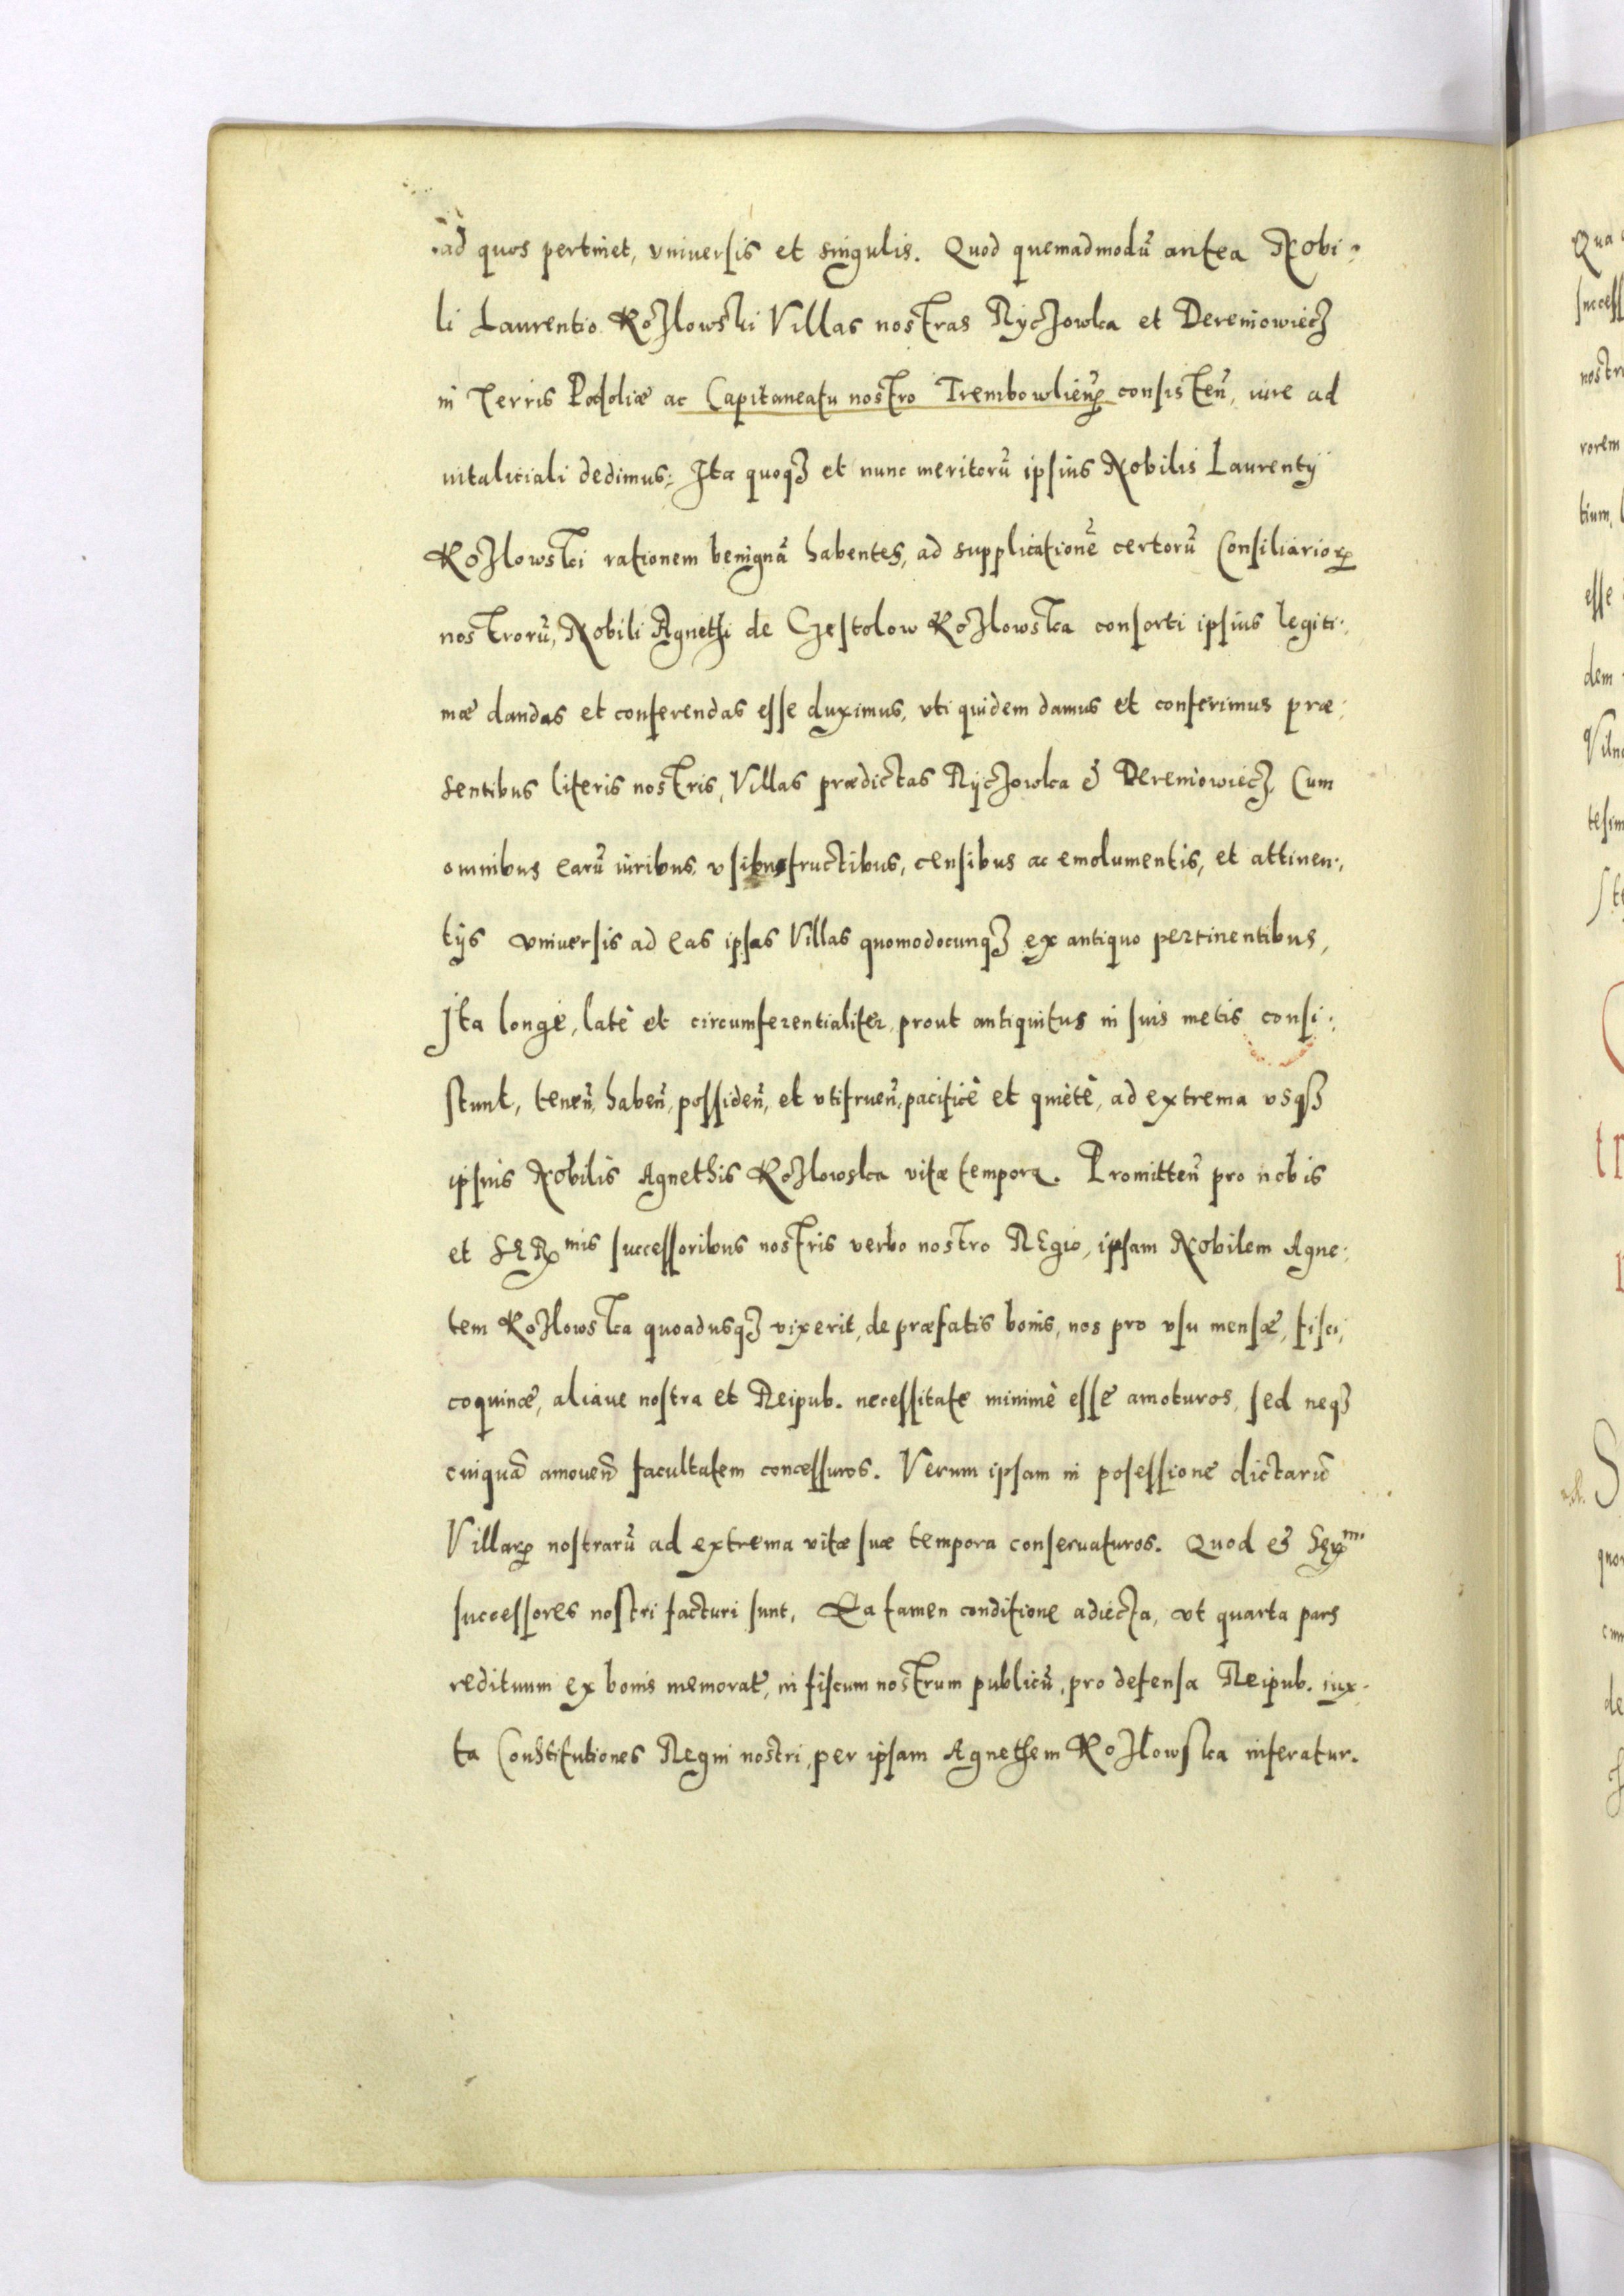 ad quos pertinet, vniuersis et singulis. Quod quemadmodū antea Nobi-
li Laurentio Kozlowski Villas nostras Ryczowka et Dereniowiecz
in Terris Podoliæ ac Capitaneatu nostro Trembowlieñ consisteñ, iure ad
uitaliciali dedimus: Ita quoqȝ et nunc meritorū ipsius Nobilis Laurentij
Kozlowski rationem benignā habentes, ad supplicationē certorū Consiliarioꝝ
nostrorū, Nobili Agnethi de Czestolow Kozlowska consorti ipsius legiti-
mæ dandas et conferendas esse duximus, vti quidem damus et conferimus præ-
sentibus literis nostris, Villas prædictas Ryczowka & Dereniowiecz, Cum
omnibus earū iuribus, vsibusfructibus, censibus ac emolumentis, et attinen-
tijs vniuersis ad eas ipsas Villas quomodocunqȝ ex antiquo pertinentibus,
Ita longè, latè et circumferentialiter, prout antiquitus in suis metis consi-
stunt, teneñ, habeñ, possideñ, et vtifrueñ, pacificè et quietè, ad extrema vsqȝ
ipsius Nobilis Agnethis Kozlowska vitæ tempora. Promitteñ pro nobis
et Serᵐⁱˢ successoribus nostris verbo nostro Regio, ipsam Nobilem Agne-
tem Kozlowska quoadusqȝ vixerit, de præfatis bonis, nos pro vsu mensæ, fisci,
coquinæ, aliaue nostra et Reipub. necessitate minimè esse amoturos, sed neqȝ
cuiquā amouend̄ facultatem concessuros. Verum ipsam in posessione dictarū
Villaꝝ nostrarū ad extrema vitæ suæ tempora conseruaturos. Quod & Serᵐⁱ
successores nostri facturi sunt, Ea tamen conditione adiecta, vt quarta pars
redituum ex bonis memorat̄, in fiscum nostrum publicū, pro defensa Reipub. iux-
ta Constitutiones Regni nostri, per ipsam Agnethem Kozlowska inferatur.